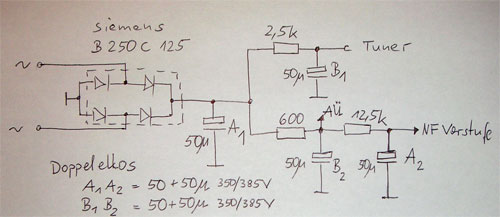 Siemens
B 250 C 125
~
~
2,5k
Tuner
50µ
B1
A1
50µ
600
AÜ
12,5k
NF Vorstufe
50µ
B2
50µ
A2
Doppelelkos
A1 A2 = 50 + 50µ 350/385V
B1 B2 = 50 + 50µ 350/385V